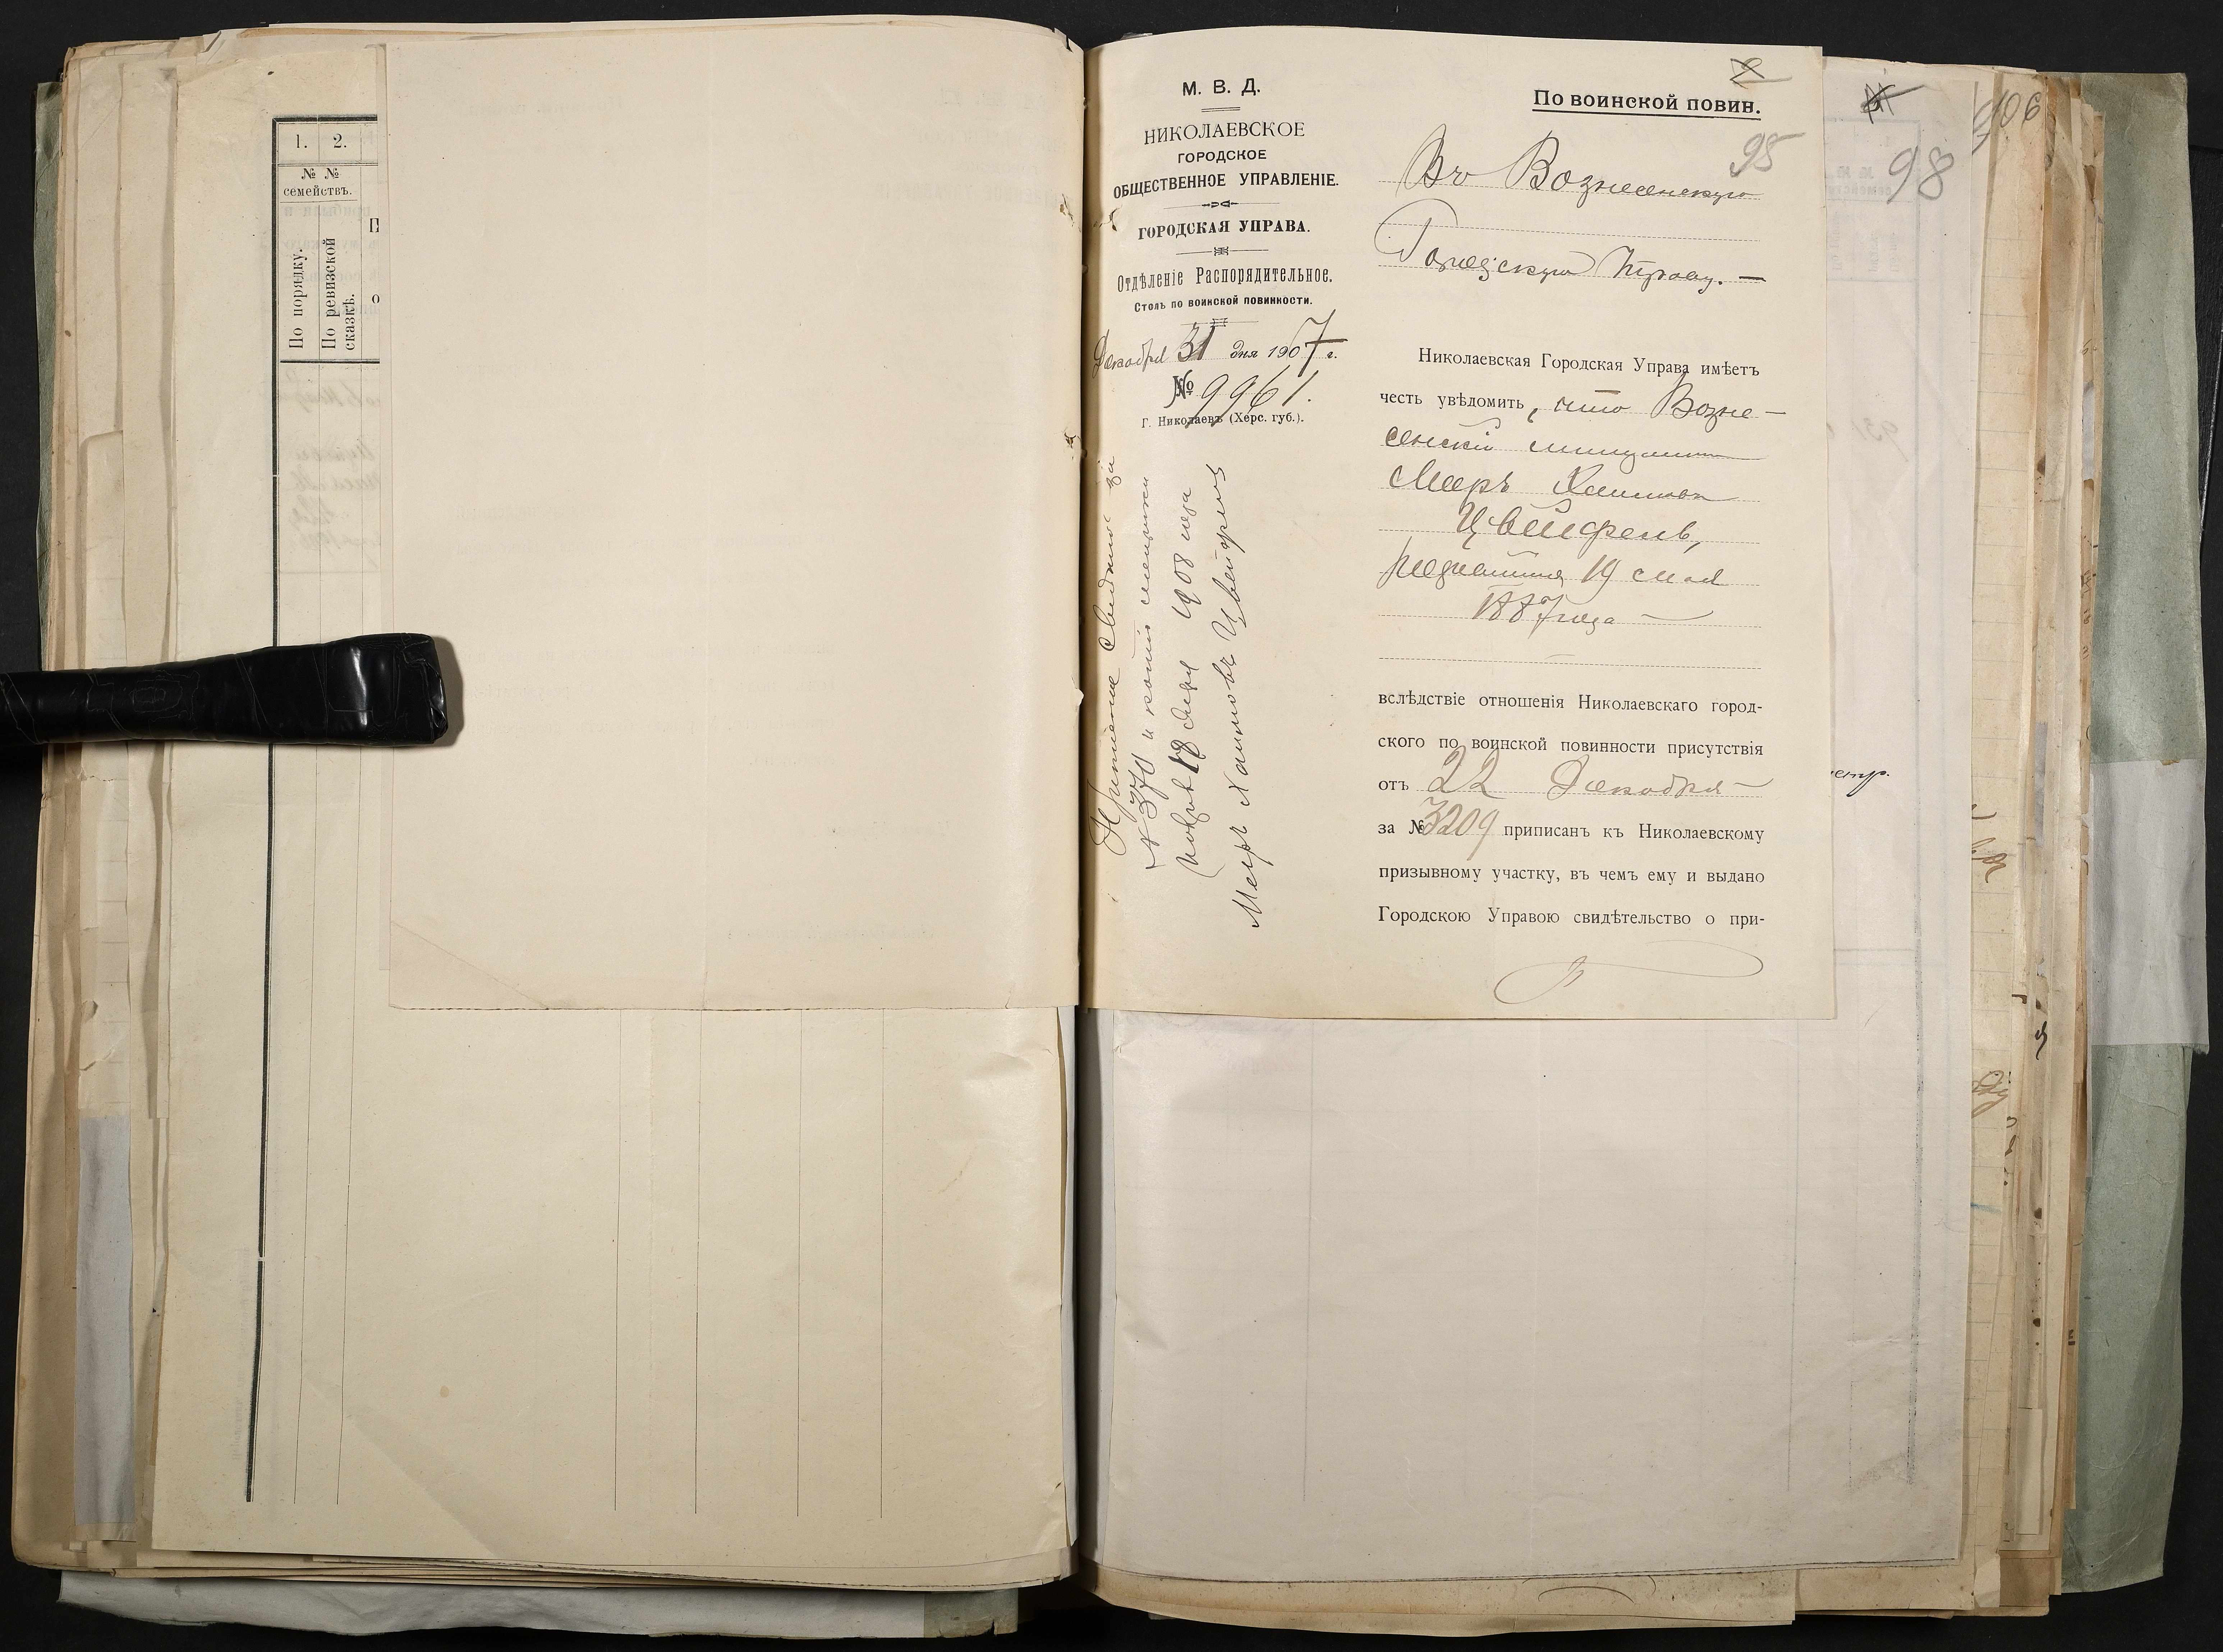 1. 2.
№ №
семействъ.
По порядку.
По ревизской
сказкѣ.
М. В. Д.
НИКОЛАЕВСКОЕ
ГОРОДСКОЕ
ОБЩЕСТВЕННОЕ УПРАВЛЕНІЕ.
ГОРОДСКАЯ УПРАВА.
Отдѣленіе Распорядительное.
Столъ по воинской повинности.
Декабря 31 дня 1907 г.
№ 9961.
Г. Николаевъ (Херс. губ.).
за
№ 370 и копія
18 1908 года
Меер Хаимовъ Цвейфель
По воинской повин.
95
Въ Вознесенскую
Городскую Управу. —
Николаевская Городская Управа имѣетъ
честь увѣдомить, что Возне-
сенскій мещанинъ
Мееръ Хаимовъ
Цвейфель,
родившійся 19 мая
1887 года —
вслѣдствіе отношенія Николаевскаго город-
ского по воинской повинности присутствія
отъ 22 Декабря
за № 3209 приписанъ къ Николаевскому
призывному участку, въ чемъ ему и выдано
Городскою Управою свидѣтельство о при-
98
106